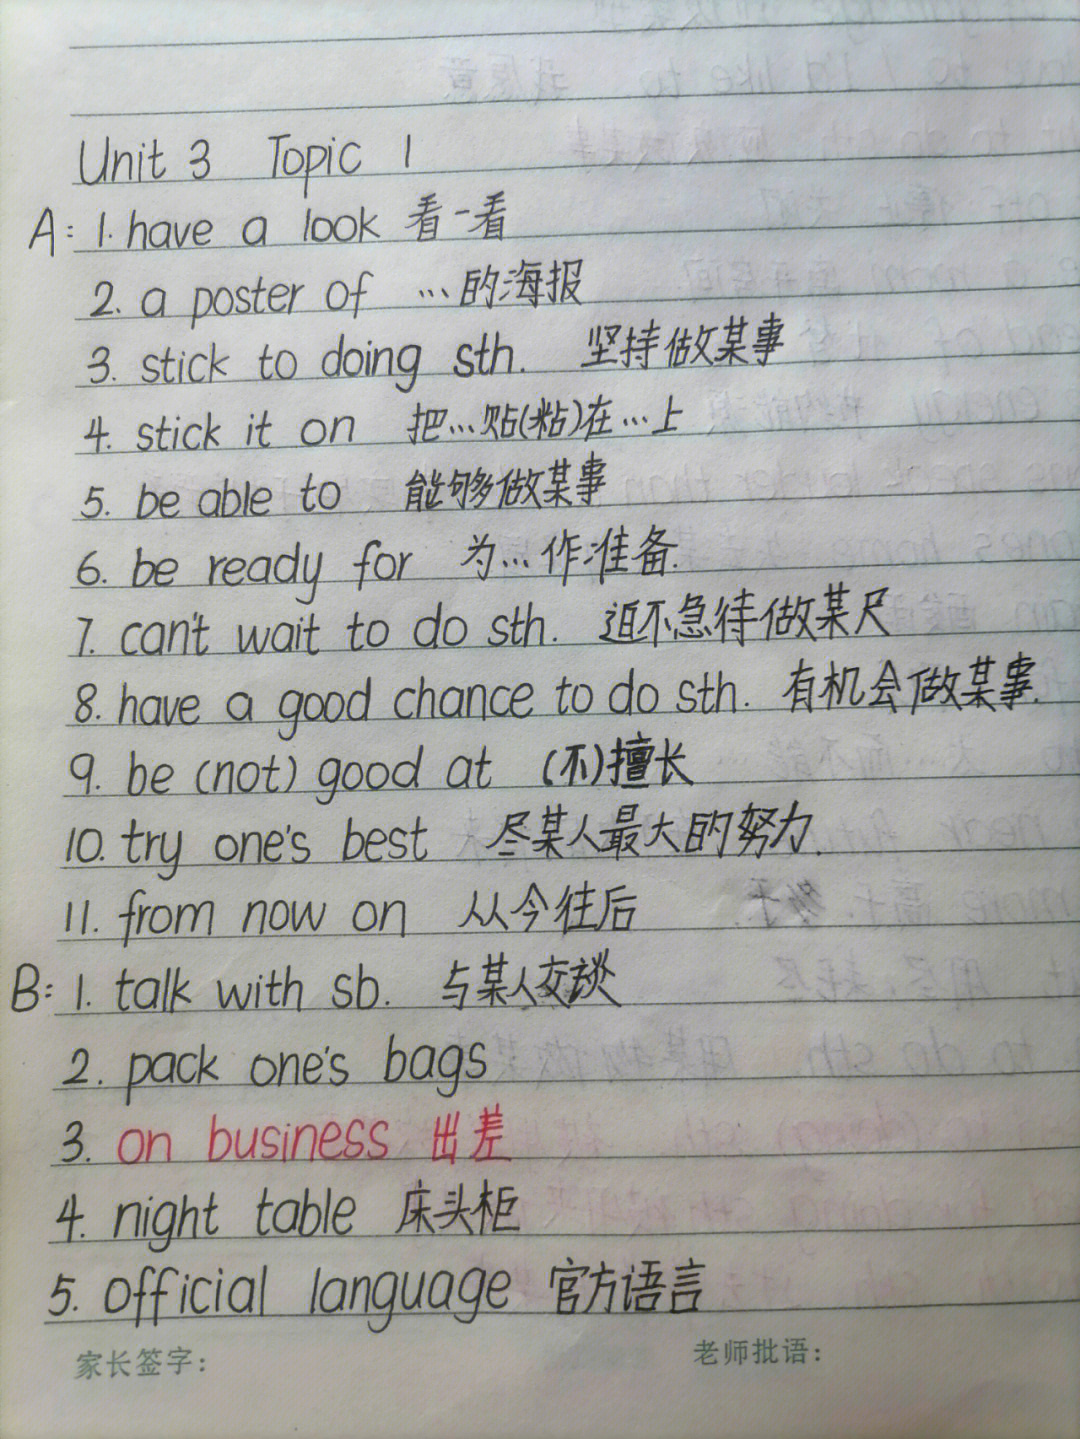 Unit 3 Topic 1
A: 1. have a look 看一看
2. a poster of …的海报
3. stick to doing sth. 坚持做某事
4. stick it on 把…贴(粘)在…上
5. be able to 能够做某事
6. be ready for 为…作准备.
7. can't wait to do sth. 迫不急待做某尺
8. have a good chance to do sth. 有机会做某事.
9. be (not) good at (不)擅长
10. try one's best 尽某人最大的努力.
11. from now on 从今往后
B: 1. talk with sb. 与某人交谈
2. pack one's bags
3. on business 出差
4. night table 床头柜
5. official language 官方语言
家长签字: 老师批语: